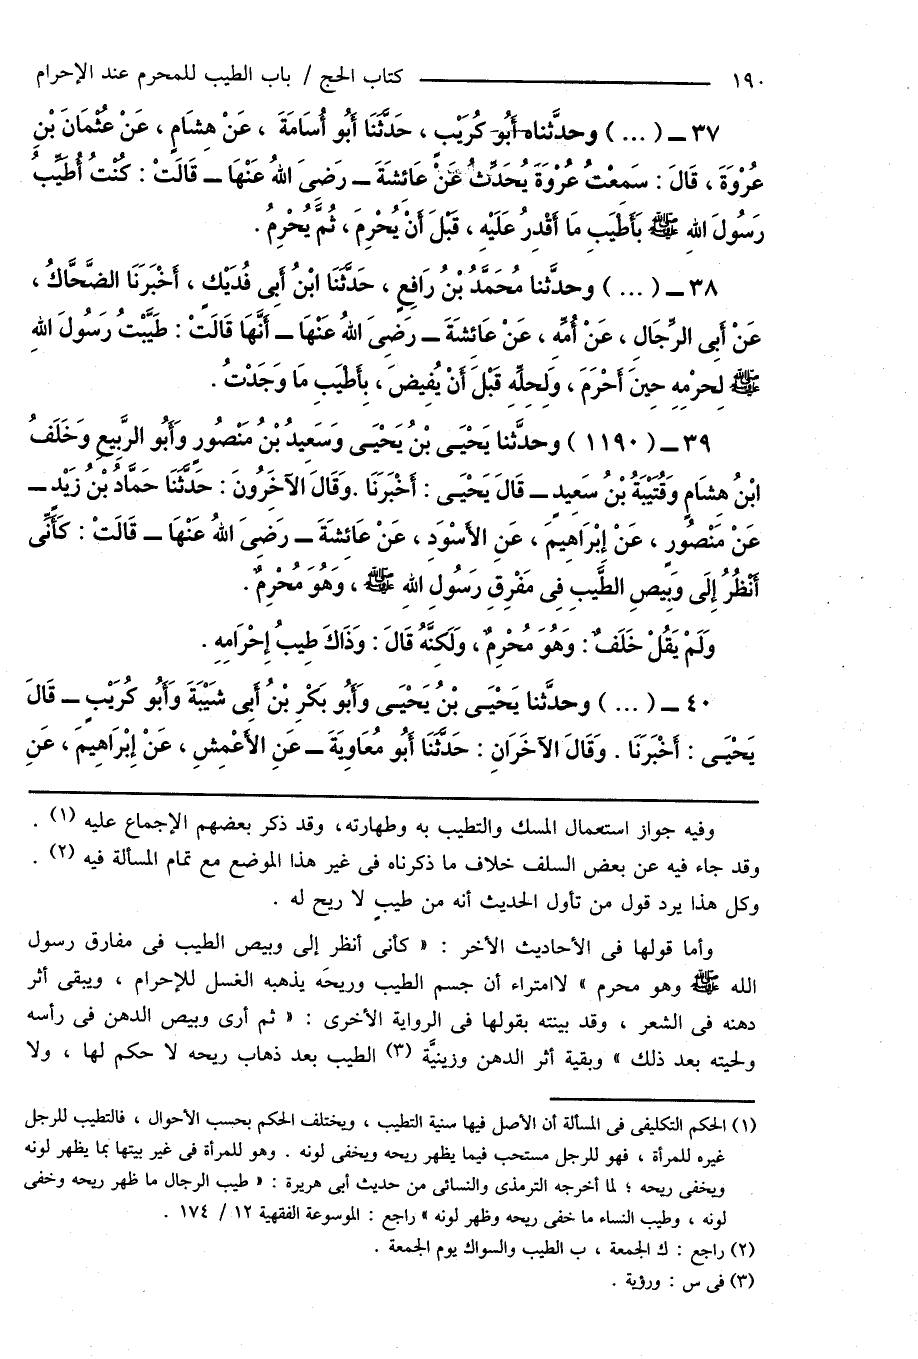 ١٩٠ ــــــــــــــــــــ كتاب الحج / باب الطيب للمحرم عند الإحرام
٣٧ ــ ( ... ) وحدثَّناه أَبُو كُرَيْبٍ ، حَدَّثَنَا أَبُو أُسَامَةَ ، عَنْ هِشَامٍ ، عَنْ عُثْمَانَ بْنِ
عُرْوَةَ ، قَالَ : سَمِعْتُ عُرْوَةَ يُحَدِّثُ عَنْ عَائِشَةَ ــ رَضِىَ اللهُ عَنْهَا ــ قَالَتْ : كُنْتُ أُطَيِّبُ
رَسُولَ اللهِ ﷺ بِأَطْيَبِ مَا أَقْدِرُ عَلَيْهِ ، قَبْلَ أَنْ يُحْرِمَ ، ثُمَّ يُحْرِمُ .
٣٨ ــ ( ... ) وحدثَّنا مُحَمَّدُ بْنُ رَافِعٍ ، حَدَّثَنَا ابْنُ أَبِى فُدَيْكٍ ، أَخْبَرَنَا الضَّحَّاكُ ،
عَنْ أَبِى الرِّجَالِ ، عَنْ أُمِّهِ ، عَنْ عَائِشَةَ ــ رَضِىَ اللهُ عَنْهَا ــ أَنَّهَا قَالَتْ : طَيَّبْتُ رَسُولَ اللهِ
ﷺ لِحِرْمِهِ حِينَ أَحْرَمَ ، وَلِحِلِّهِ قَبْلَ أَنْ يُفِيضَ ، بِأَطْيَبِ مَا وَجَدْتُ .
٣٩ ــ ( ١١٩٠ ) وحدثَّنا يَحْيَى بْنُ يَحْيَى وَسَعِيدُ بْنُ مَنْصُورٍ وَأَبُو الرَّبِيعِ وَخَلَفُ
ابْنُ هِشَامٍ وَقُتَيْبَةُ بْنُ سَعِيدٍ ــ قَالَ يَحْيَى : أَخْبَرَنَا . وَقَالَ الآخَرُونَ : حَدَّثَنَا حَمَّادُ بْنُ زَيْدٍ ــ
عَنْ مَنْصُورٍ ، عَنْ إِبْرَاهِيمَ ، عَنِ الأَسْوَدِ ، عَنْ عَائِشَةَ ــ رَضِىَ اللهُ عَنْهَا ــ قَالَتْ : كَأَنِّى
أَنْظُرُ إِلَى وَبِيصِ الطِّيبِ فِى مَفْرِقِ رَسُولِ اللهِ ﷺ ، وَهُوَ مُحْرِمٌ .
وَلَمْ يَقُلْ خَلَفٌ : وَهُوَ مُحْرِمٌ ، وَلَكِنَّهُ قَالَ : وَذَاكَ طِيبُ إِحْرَامِهِ .
٤٠ ــ ( ... ) وحدثَّنا يَحْيَى بْنُ يَحْيَى وَأَبُو بَكْرِ بْنُ أَبِى شَيْبَةَ وَأَبُو كُرَيْبٍ ــ قَالَ
يَحْيَى : أَخْبَرَنَا . وَقَالَ الآخَرَانِ : حَدَّثَنَا أَبُو مُعَاوِيَةَ ــ عَنِ الأَعْمَشِ ، عَنْ إِبْرَاهِيمَ ، عَنِ
وفيه جواز استعمال المسك والتطيب به وطهارته، وقد ذكر بعضهم الإجماع عليه (١) .
وقد جاء فيه عن بعض السلف خلاف ما ذكرناه فى غير هذا الموضع مع تمام المسألة فيه (٢) .
وكل هذا يرد قول من تأول الحديث أنه من طيبٍ لا ريح له .
وأما قولها فى الأحاديث الأخر : « كأنى أنظر إلى وبيص الطيب فى مفارق رسول
الله ﷺ وهو محرم » لاامتراء أن جسم الطيب وريحَه يذهبه الغسل للإحرام ، ويبقى أثر
دهنه فى الشعر ، وقد بينته بقولها فى الرواية الأخرى : « ثم أرى وبيص الدهن فى رأسه
ولحيته بعد ذلك » وبقية أثر الدهن وزينيَّة (٣) الطيب بعد ذهاب ريحه لا حكم لها ، ولا
(١) الحكم التكليفى فى المسألة أن الأصل فيها سنية التطيب ، ويختلف الحكم بحسب الأحوال ، فالتطيب للرجل
غيره للمرأة ، فهو للرجل مستحب فيما يظهر ريحه ويخفى لونه . وهو للمرأة فى غير بيتها بما يظهر لونه
ويخفى ريحه ؛ لما أخرجه الترمذى والنسائى من حديث أبى هريرة : « طيب الرجال ما ظهر ريحه وخفى
لونه ، وطيب النساء ما خفى ريحه وظهر لونه » راجع : الموسوعة الفقهية ١٢ / ١٧٤ .
(٢) راجع : ك الجمعة ، ب الطيب والسواك يوم الجمعة .
(٣) فى س : ورؤية .